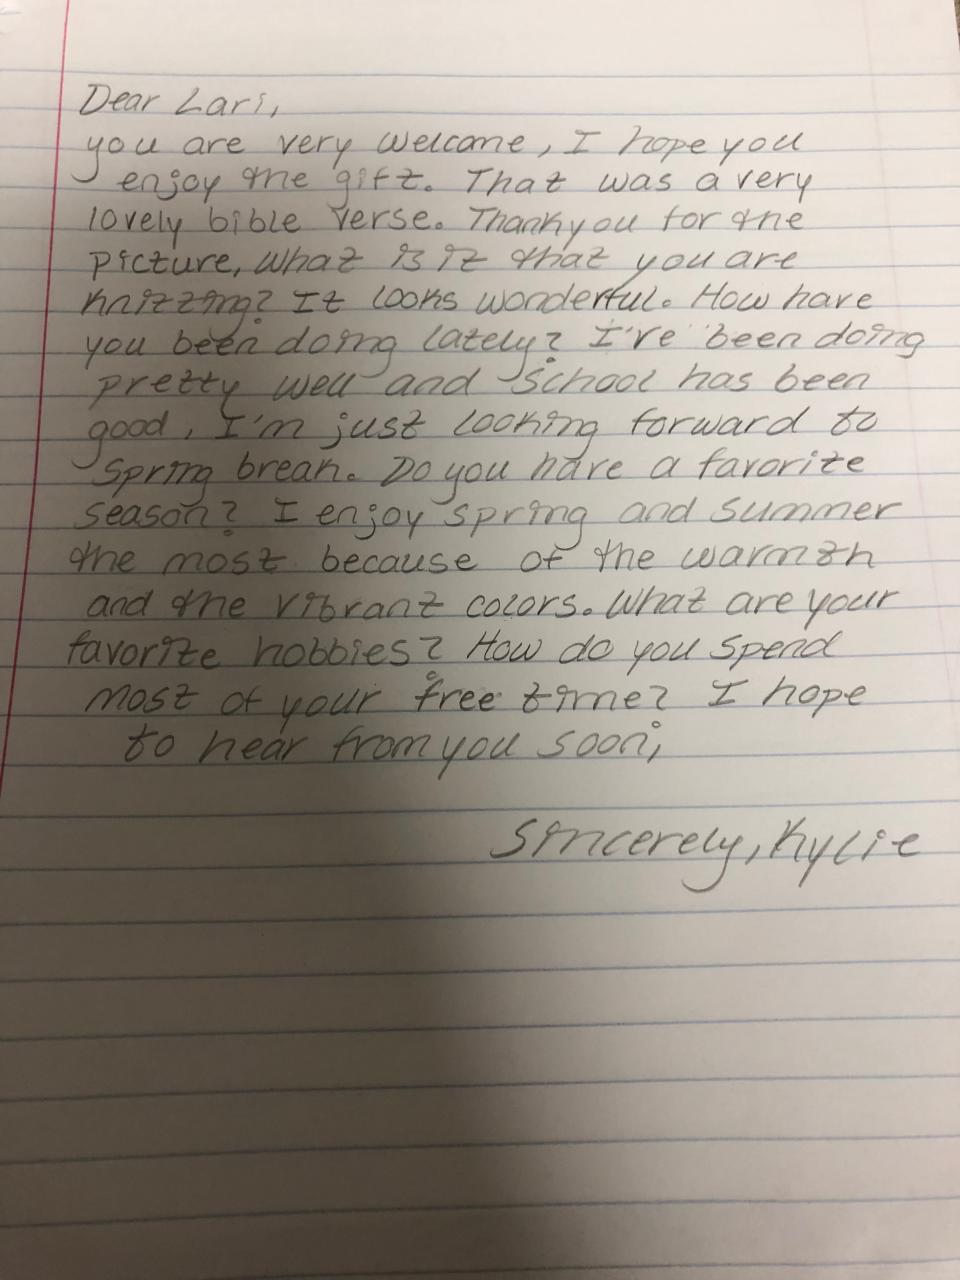 Dear Lari,
you are very welcome, I hope you
enjoy the gift. That was a very
lovely bible verse. Thank you for the
picture, what is it that you are
knitting? It looks wonderful. How have
you been doing lately? I've been doing
pretty well and school has been
good, I'm just looking forward to
Spring break. Do you have a favorite
season? I enjoy spring and summer
the most because of the warmth
and the vibrant colors. What are your
favorite hobbies? How do you spend
most of your free time? I hope
to hear from you soon,
Sincerely, Kylie